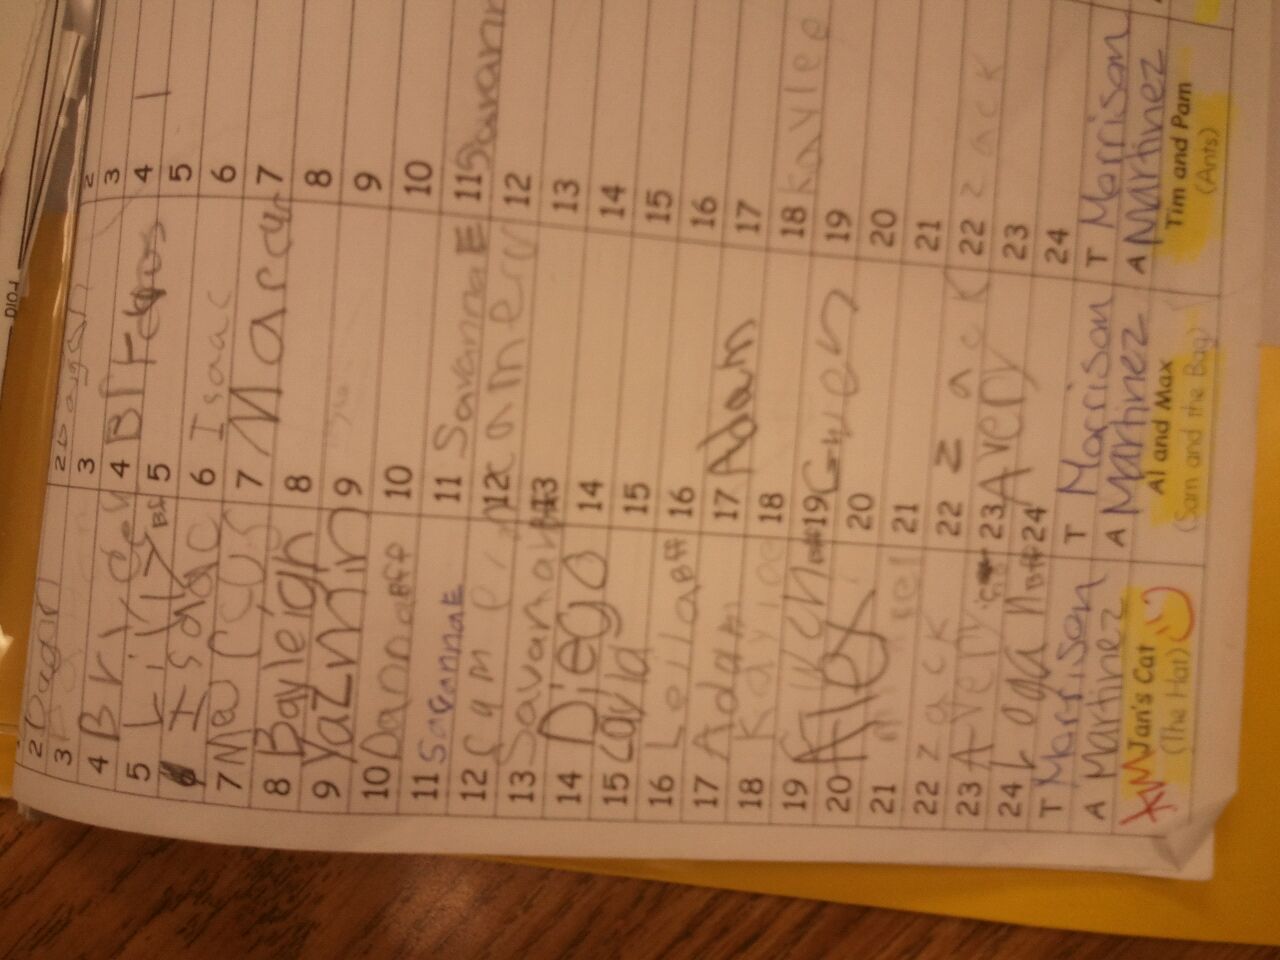 2
3
4 Bryden
5 Lily
Isaac
7 Marcus
8 Bayleigh
9 Yazmin
10 Danna BFF
11 Savannah E
12 Cameron
13 Savanah
14 Diego
15 Layla
16 Leila BFF
17 Adam
18 Kaylee
19
20 Alex
21
22 zack
23 Avery
24 Logan BFF
T Morrison
A Martinez
Jan's Cat
(The Hat)
2
3
4
5
6 Isaac
7 Marcus
8
9
10
11 Savanna E
12 camren
13
14
15
16
17 Adam
18
19 Gwen
20
21
22 zack
23 Avery
24
T Morrison
A Martinez
Al and Max
(Sam and the Bag)
2
3
4 1
5
6
7
8
9
10
11 Savann
12
13
14
15
16
17
18 Kaylee
19
20
21
22 zack
23
24
T Morrison
A Martinez
Tim and Pam
(Ants)